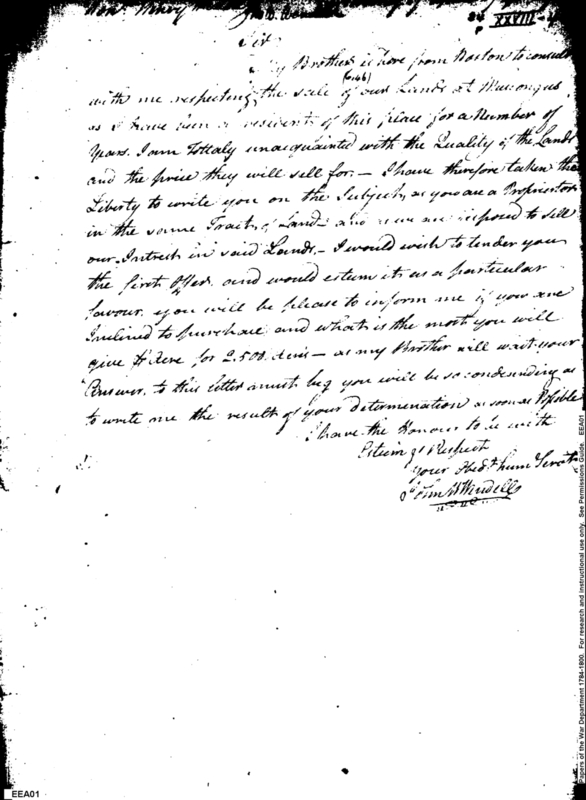 Sir
My Brother is here from Boston to consult
with me respecting the sale of our Lands at Muscongus
as I have been a resident of this place for a Number of
Years. I am Totaly unacquainted with the Quality of the Lands
and the price they will sell for. — I have therefore taken the
Liberty to write you on the Subject, as you are a Proprietor
in the same Tract of Land — and as we are disposed to sell
our Intrest in said Lands. — I would wish to tender you
the first offer and would esteem it as a particular
favour. you will be please to inform me if you are
Inclined to purchase and what is the most you will
give pr Acre for 2.500 Acres — as my Brother will wait your
Answer to this letter must beg you will be so condending as
to write me the result of your determenation as soon as Possible
I have the Honour to be with
Esteem & Respect
your Obedt. hum Servt.
John W Wendell
EEA01
Papers of the War Department 1784-1800. For research and instructional use only. See Permissions Guide. EEA01